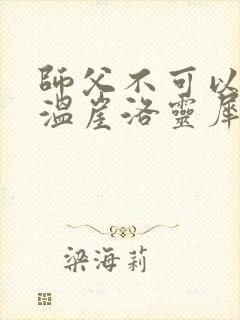 師父不可以
溫崖洛靈犀
梁海莉